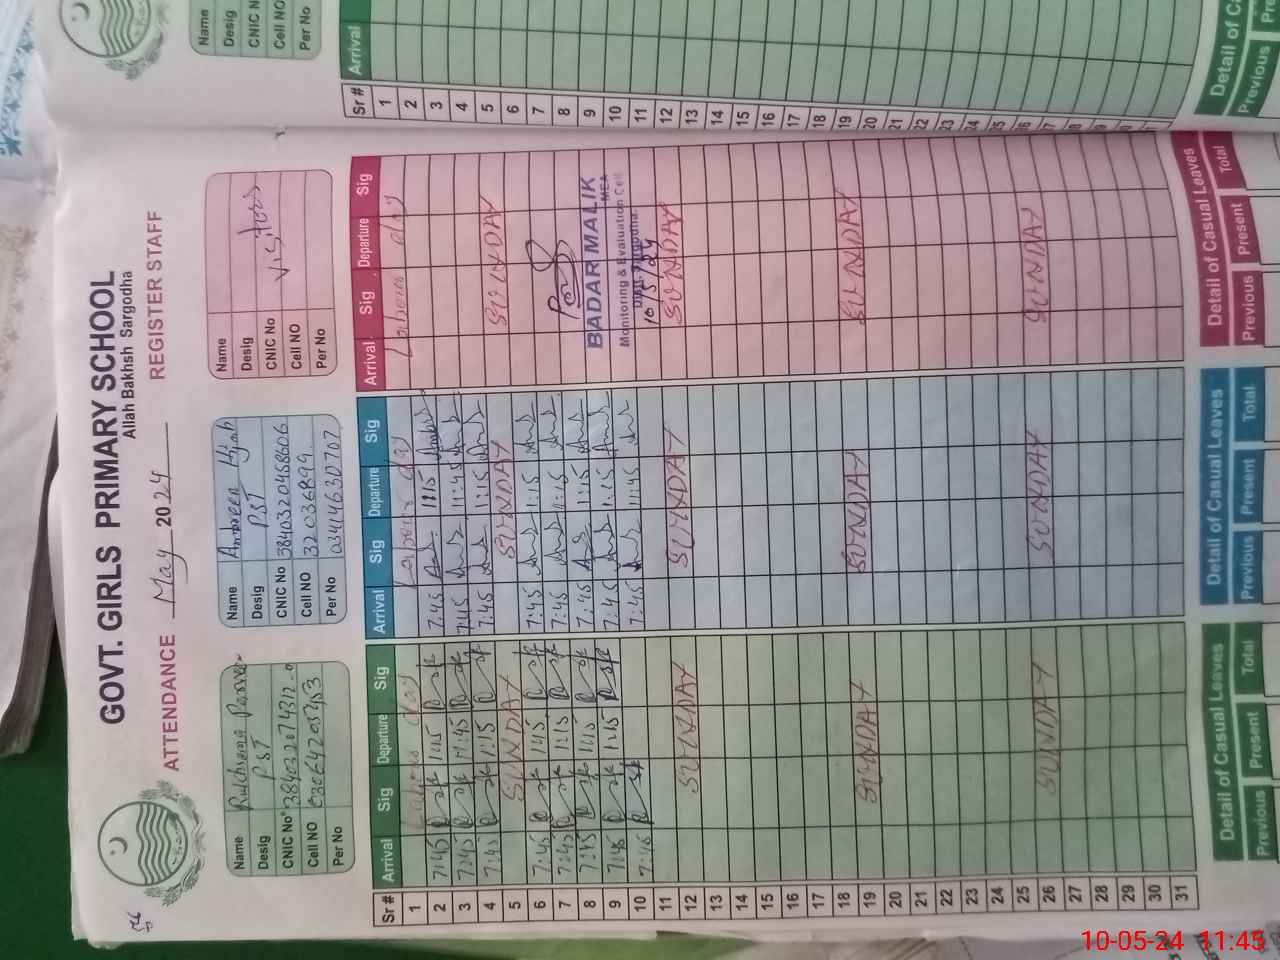 GOVT. GIRLS PRIMARY SCHOOL
Allah Bakhsh Sargodha
ATTENDANCE May 2024 REGISTER STAFF
Name
Desig PST
CNIC No
Cell NO
Per No
Name Ambreen
Desig PST
CNIC No
Cell NO 32036899
Per No 03414630707
Name
Desig
CNIC No Visitors
Cell NO
Per No
Sr# Arrival Sig Departure Sig Arrival Sig Departure Sig Arrival Sig Departure Sig
1 Labour day Labour day Labour day
2 7:45 1:15 7:45 11:15
3 7:45 11:45 7:45 11:45
4 7:45 1:15 7:45 11:15
5 SUNDAY SUNDAY SUNDAY
6 7:45 1:15 7:45 1:15
7 7:45 1:15 7:45
8 7:45 1:15 7:45 1:15
9 7:45 1:15 7:45 1:15
10 7:45 7:45 11:45
BADAR MALIK
MEA
Monitoring & Evaluation Cell
Distt. Sargodha.
10/5/24
11
12 SUNDAY SUNDAY SUNDAY
13
14
15
16
17
18
19 SUNDAY SUNDAY SUNDAY
20
21
22
23
24
25
26 SUNDAY SUNDAY SUNDAY
27
28
29
30
31
Detail of Casual Leaves Detail of Casual Leaves Detail of Casual Leaves
Previous Present Total Previous Present Total Previous Present Total
Name
Desig
CNIC N
Cell NO
Per No
Sr# Arrival
1
2
3
4
5
6
7
8
9
10
11
12
13
14
15
16
17
18
19
20
21
22
23
24
25
26
Detail of Ca
Previous Pre
10-05-24 11:45